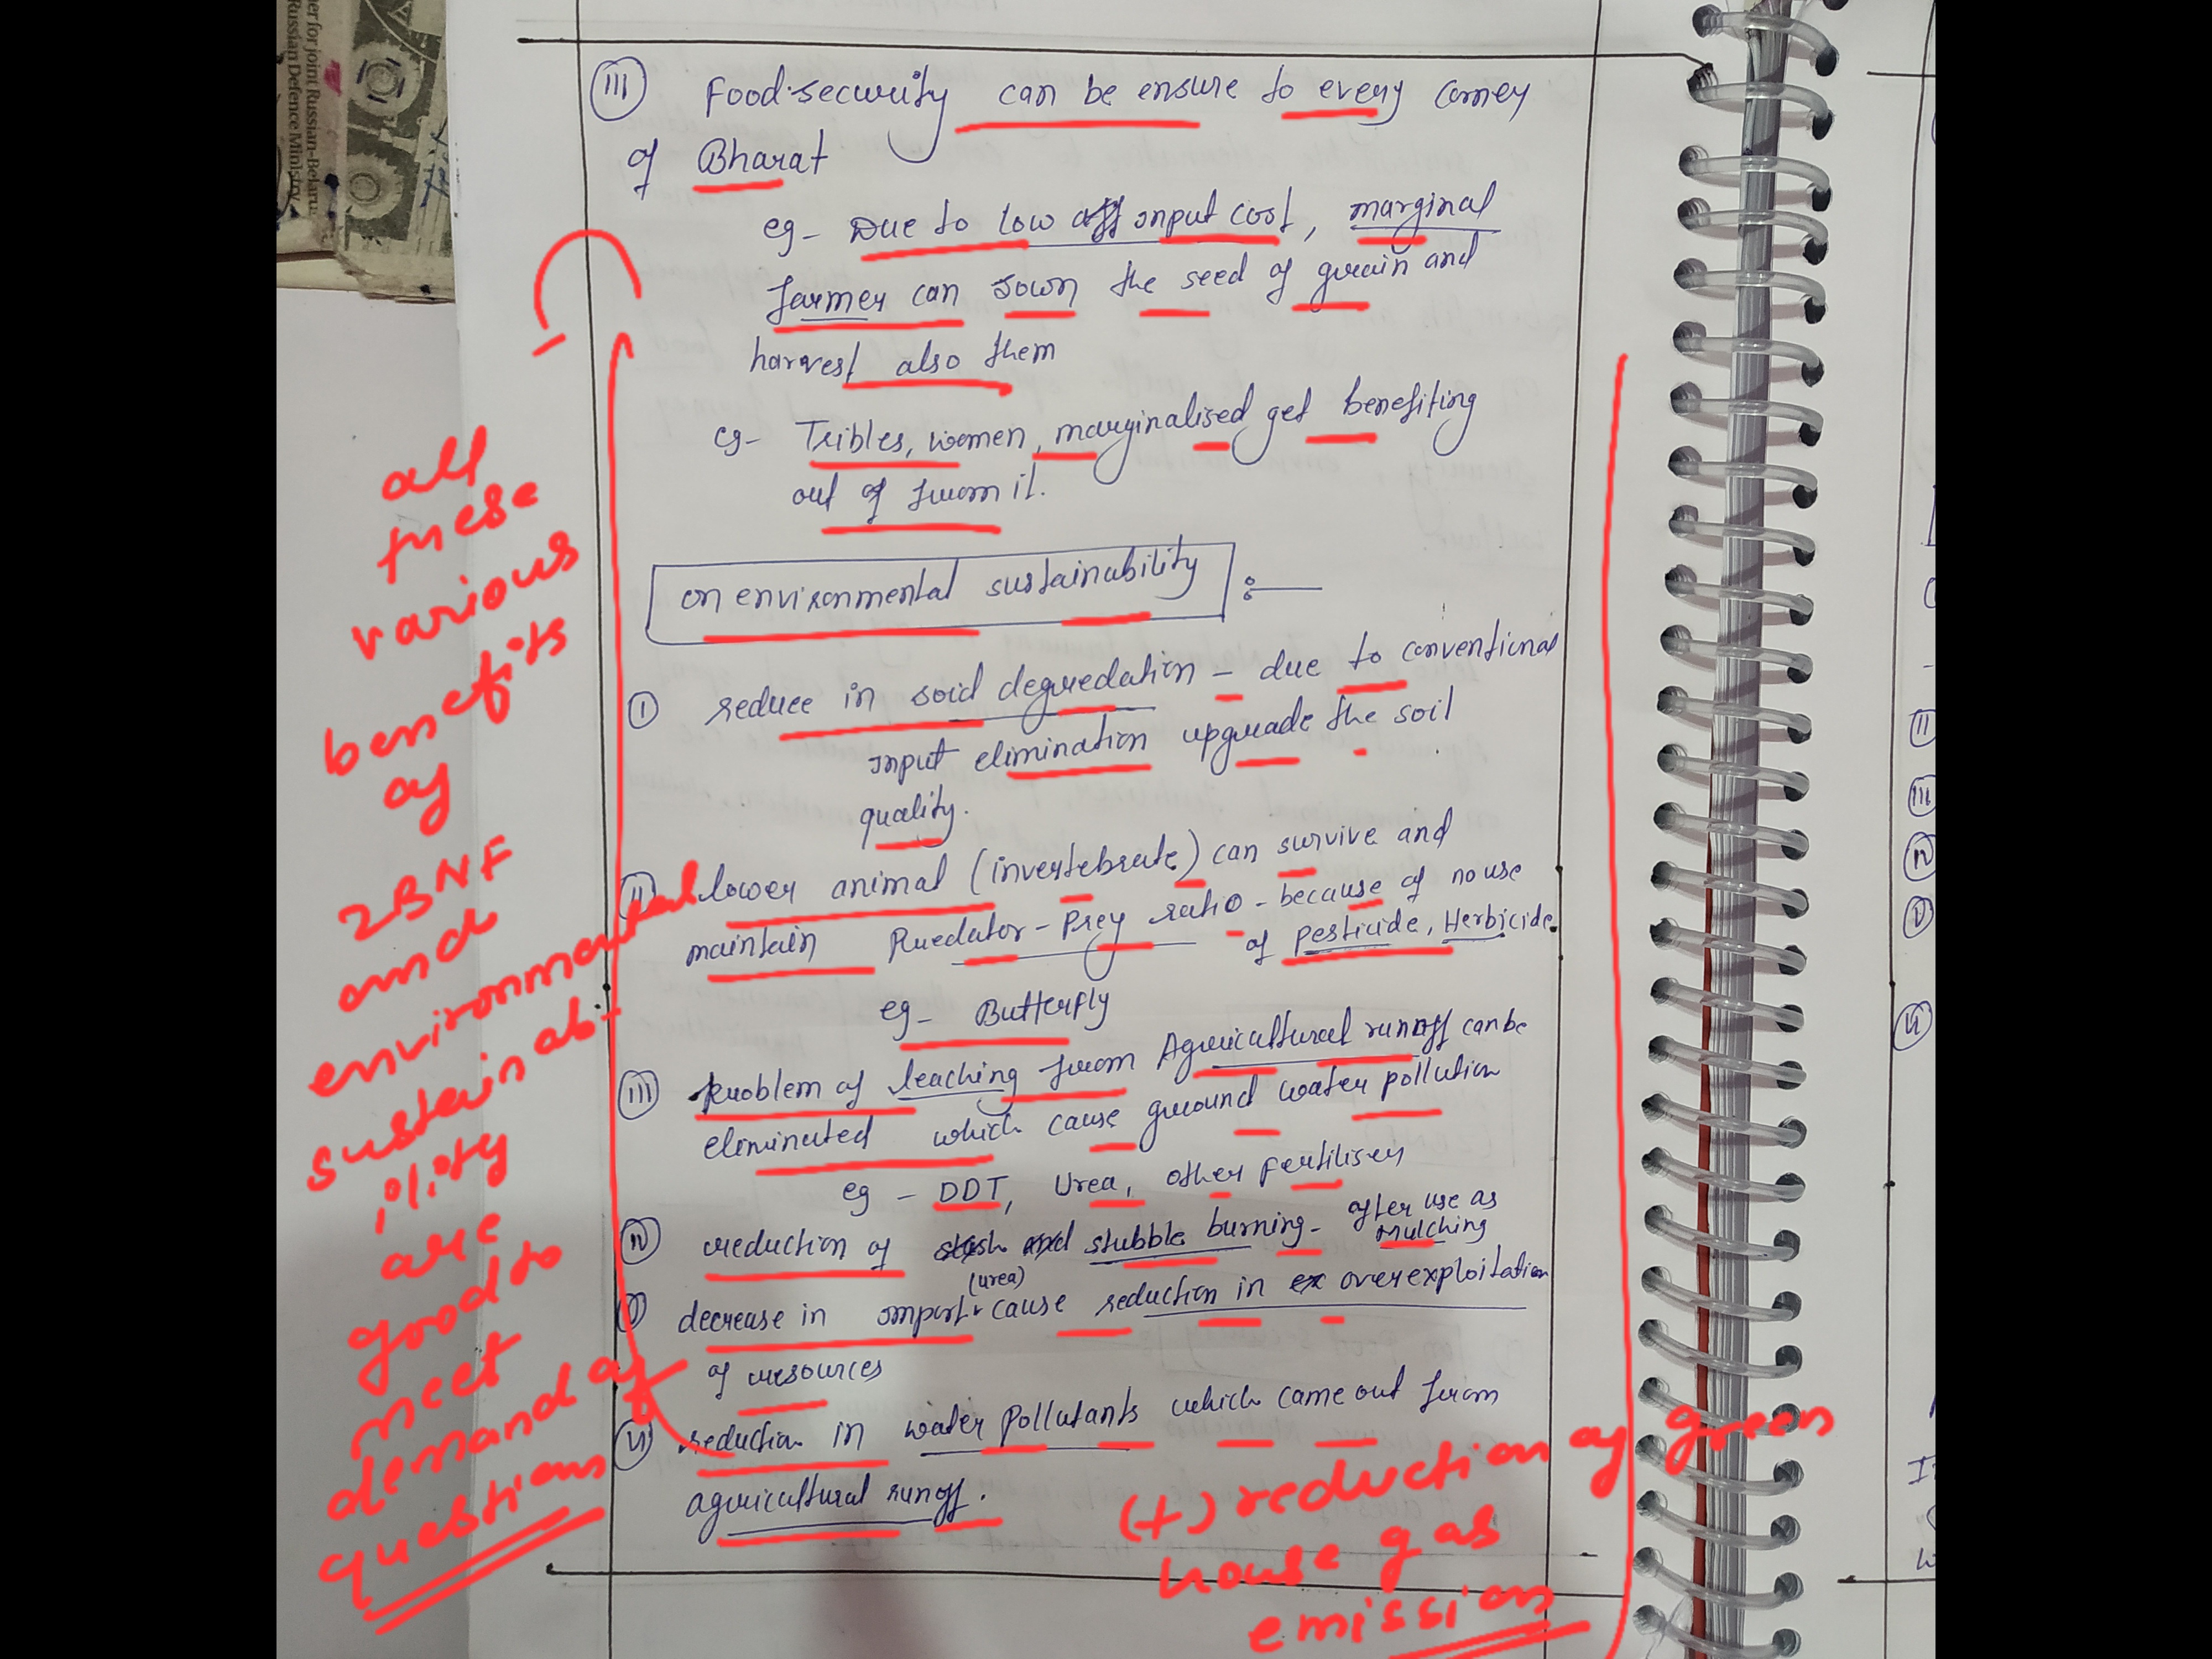 er for joint Russian-Belaru
Russian Defence Ministry
(III) Food security can be ensure to every corney
of Bharat
eg- Due to low input cost, marginal
farmer can sown the seed of grain and
harvest also them
eg- Tribles, women, marginalised get benefiting
out of from it.
on environmental sustainability :-
(I) reduce in soid degredation - due to conventional
input elimination upgrade the soil
quality.
(II) lower animal (invertebrate) can survive and
maintain Predator-Prey ratio - because of no use
of pesticide, Herbicide.
eg- Butterfly
(III) Problem of leaching from Agricultural runoff can be
eliminated which cause ground water pollution
eg - DDT, Urea, other fertiliser
(IV) reduction of stubble burning- after use as
Mulching
(urea)
(V) decrease in import cause reduction in over exploitation
of resources
(VI) reduction in water pollutants which came out from
agricultural runoff.
all
these
various
benefits
of
ZBNF
and
environmental
sustainab-
ility
are
good to
meet
demand of
question
(+) reduction of green
house gas
emission